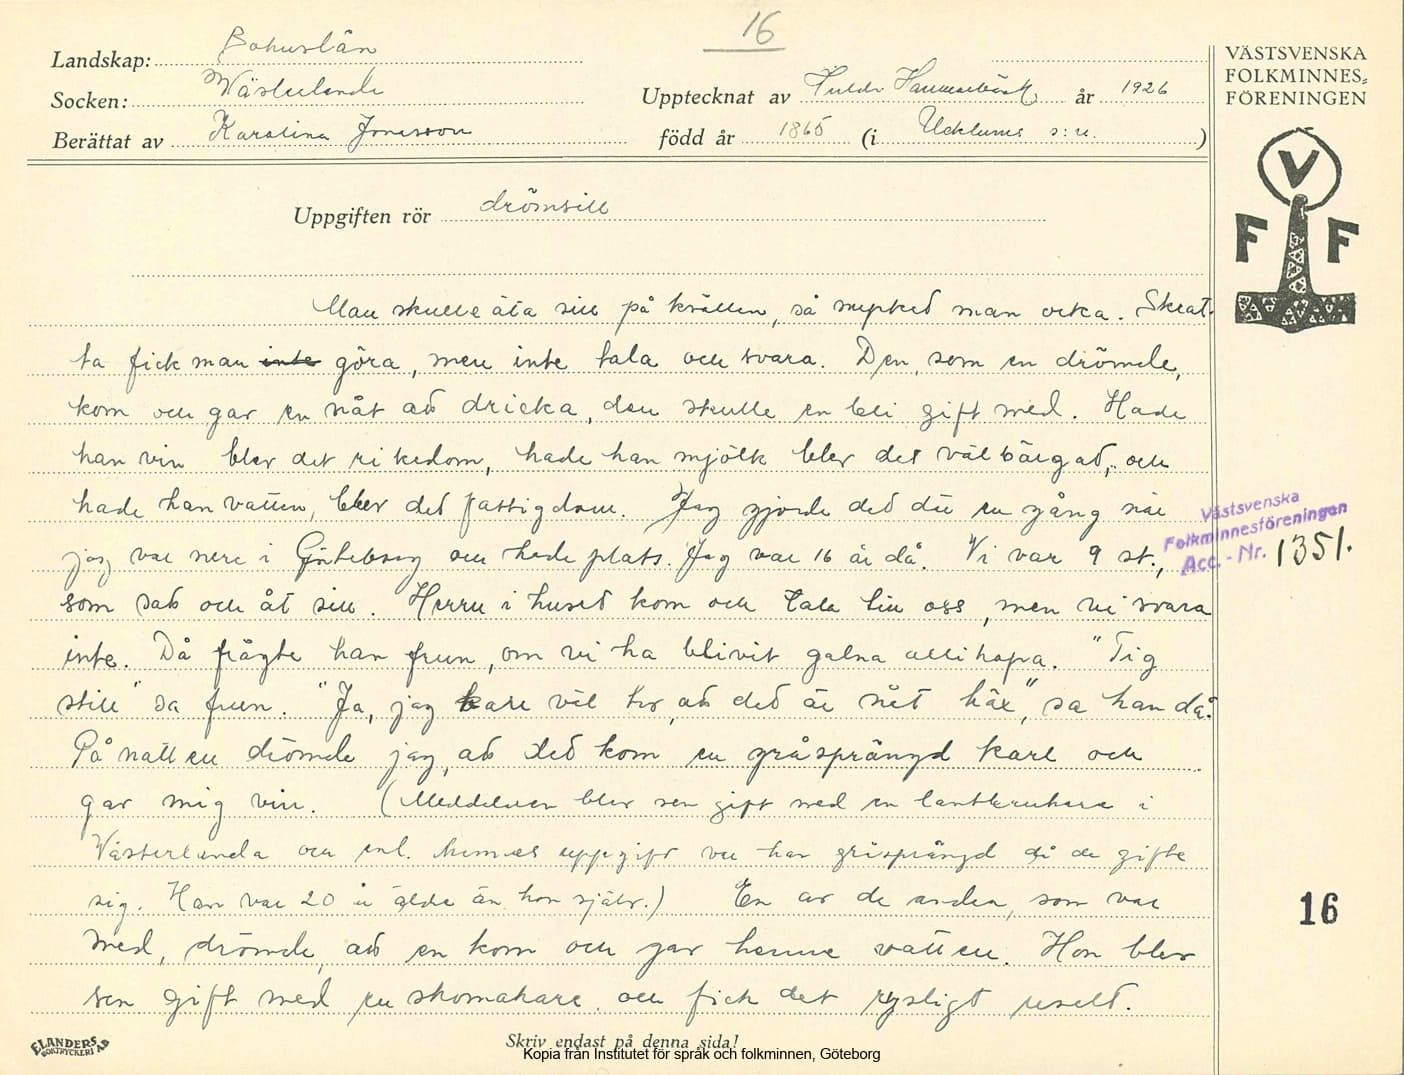 16
Landskap: Bohuslän
Socken: Västerlanda
Upptecknat av Hulda Hammarbäck år 1926
Berättat av Karolina Jonasson född år 1865 (i Ucklums s:n. )
VÄSTSVENSKA
FOLKMINNES-
FÖRENINGEN
V
F F
Uppgiften rör drömsill
Man skulle äta sill på kvällen, så mycked man orka. Skrat-
ta fick man inte göra, men inte tala och svara. Den, som en drömde,
kom och gav en nåt ad dricka, den skulle en bli gift med. Hade
han vin blev det rikedom, hade han mjölk blev det välbärgad, och
hade han vatten, blev det fattigdom. Jag gjorde det där en gång när
jag var nere i Göteborg och hade plats. Jag var 16 år då. Vi var 9 st.,
som satt och åt sill. Herrn i huset kom och tala till oss, men vi svara
inte. Då frågte han frun, om vi ha blivit galna allihopa. "Tig
still" sa frun. "Ja, jag kare väl tro, ad det är nåt här", sa han då.
På natten drömde jag, ad det kom en gråsprängd karl och
gav mig vin. (Meddelaren blev sen gift med en lantbrukare i
Västerlanda och enl. hennes uppgift var han gråsprängd då de gifte
sig. Han var 20 år äldre än hon själv.) En av de andra, som var
med, drömde, ad en kom och gav henne vatten. Hon blev
sen gift med en skomakare och fick det rysligt uselt.
Västsvenska
Folkminnesföreningen
Acc. - Nr. 1351.
16
ELANDERS
BOKTRYCKERI AB
Skriv endast på denna sida!
Kopia från Institutet för språk och folkminnen, Göteborg